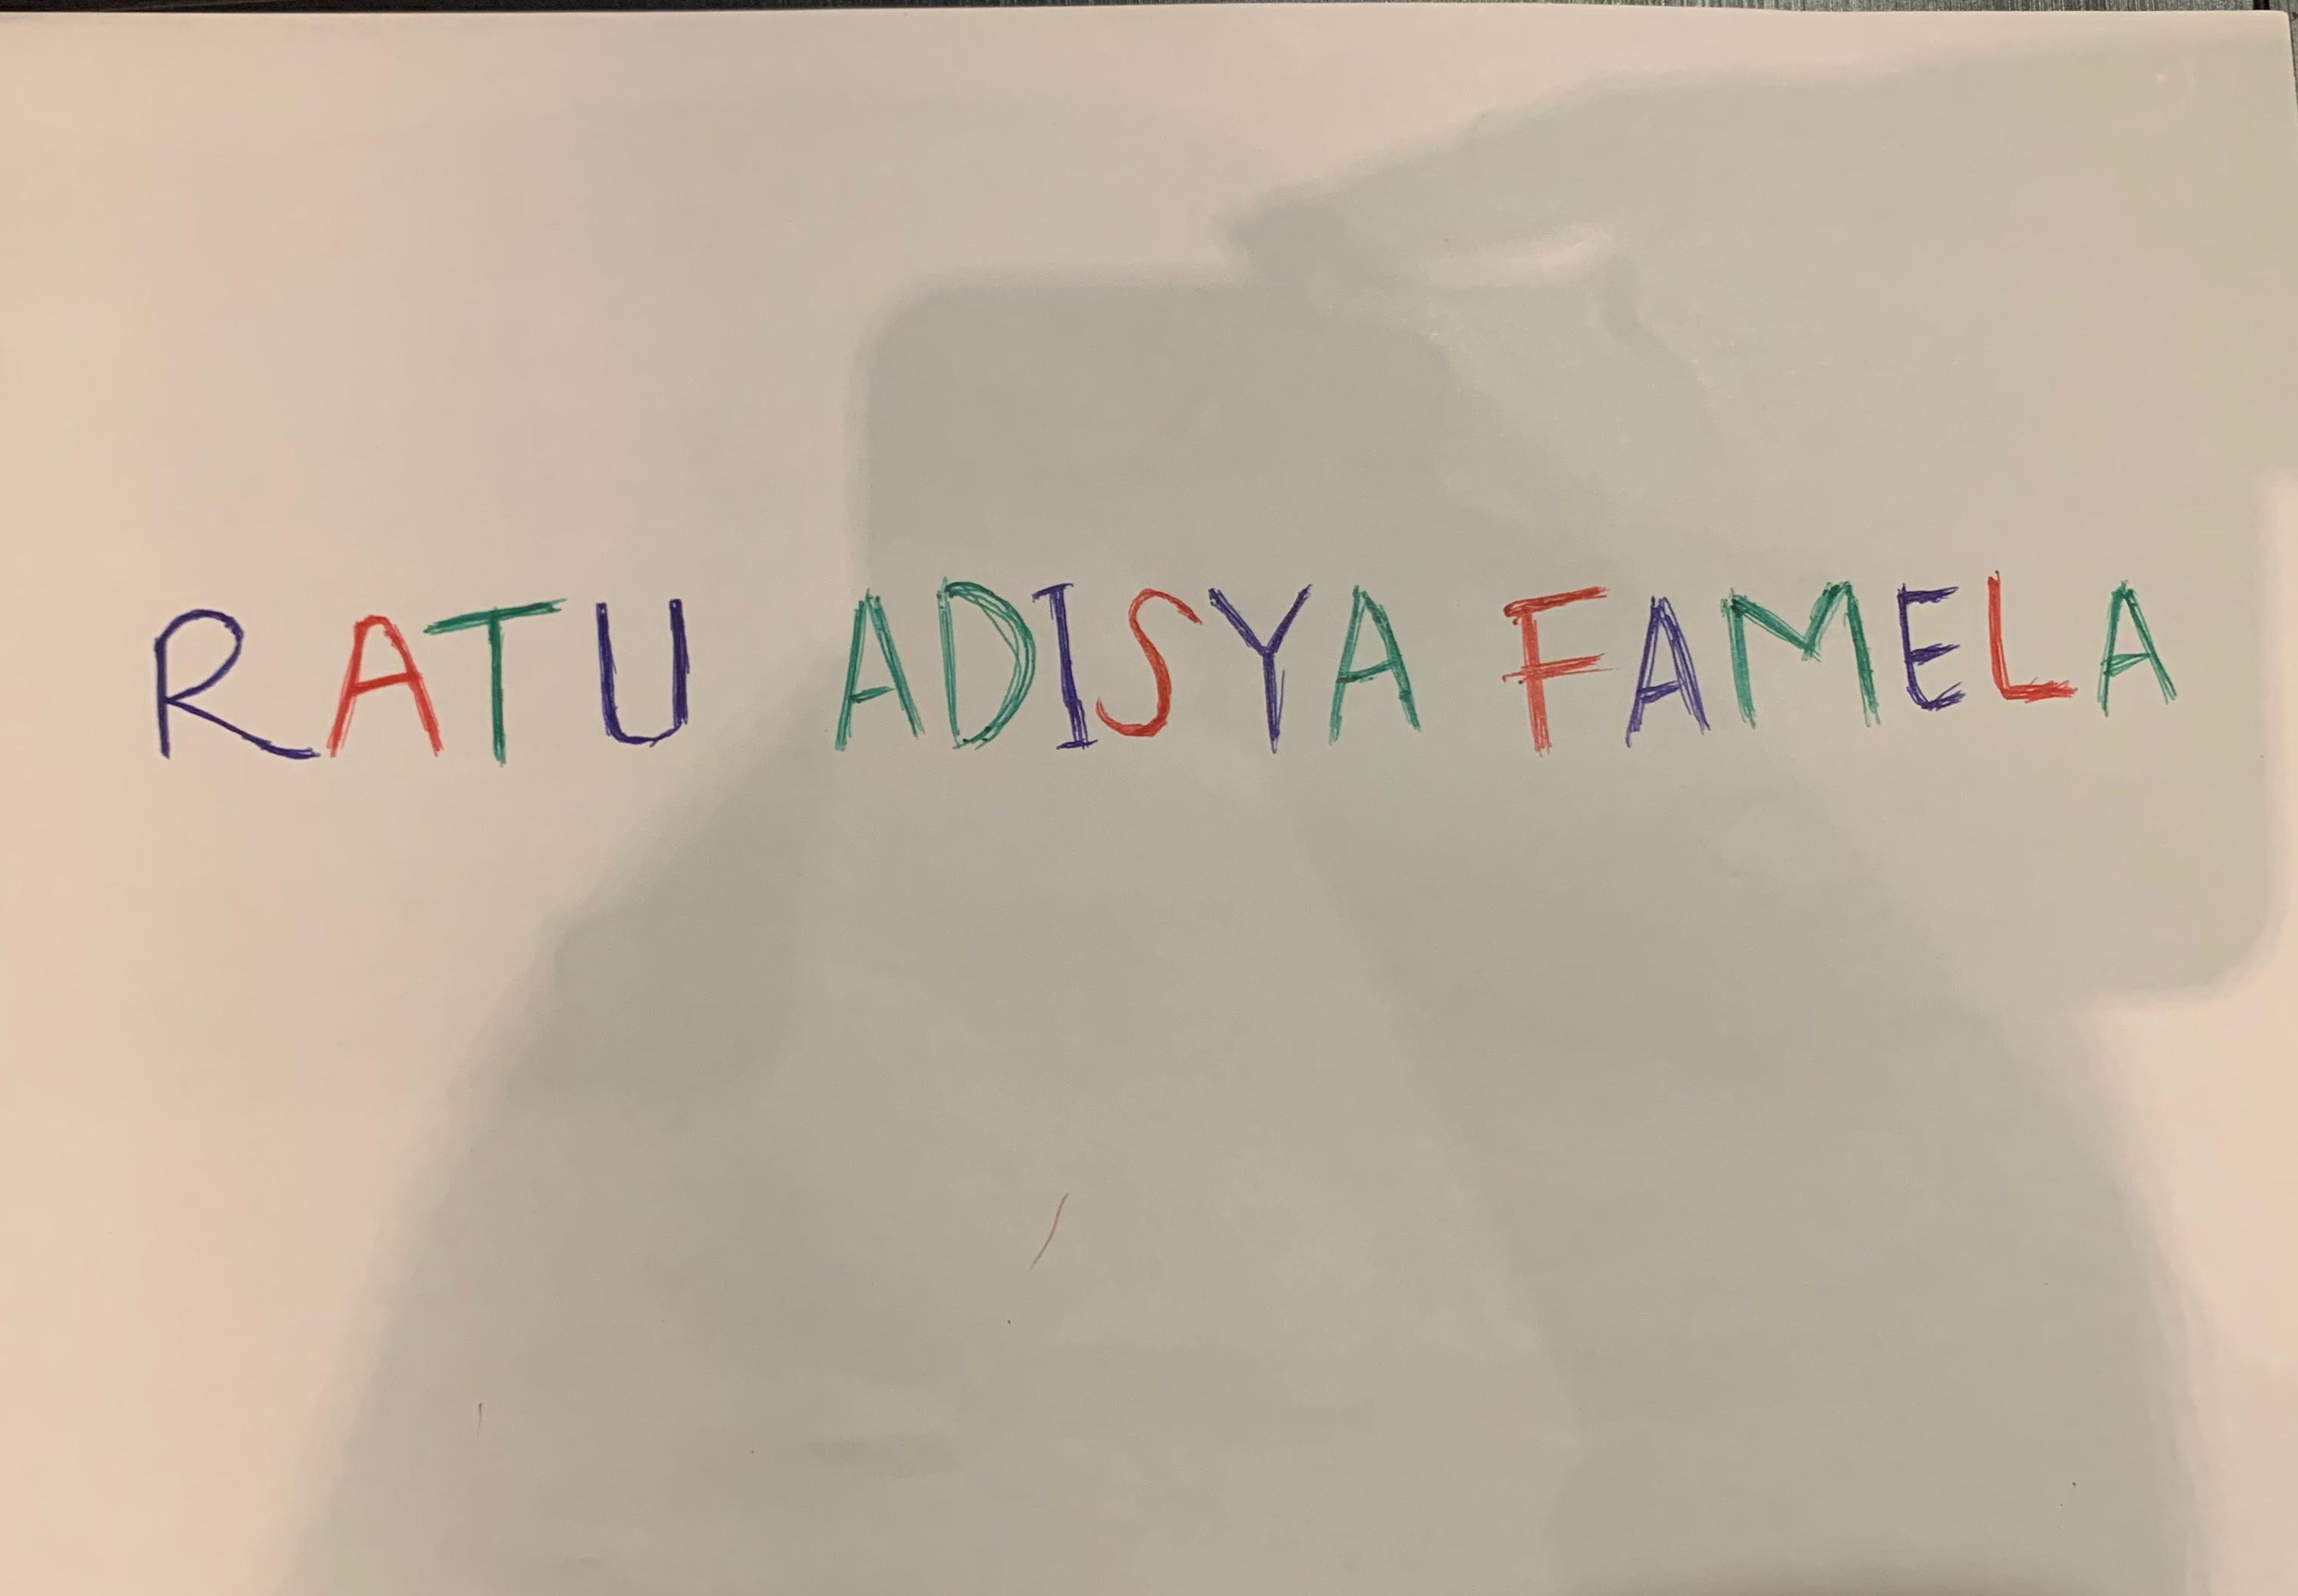 RATU ADISYA FAMELA